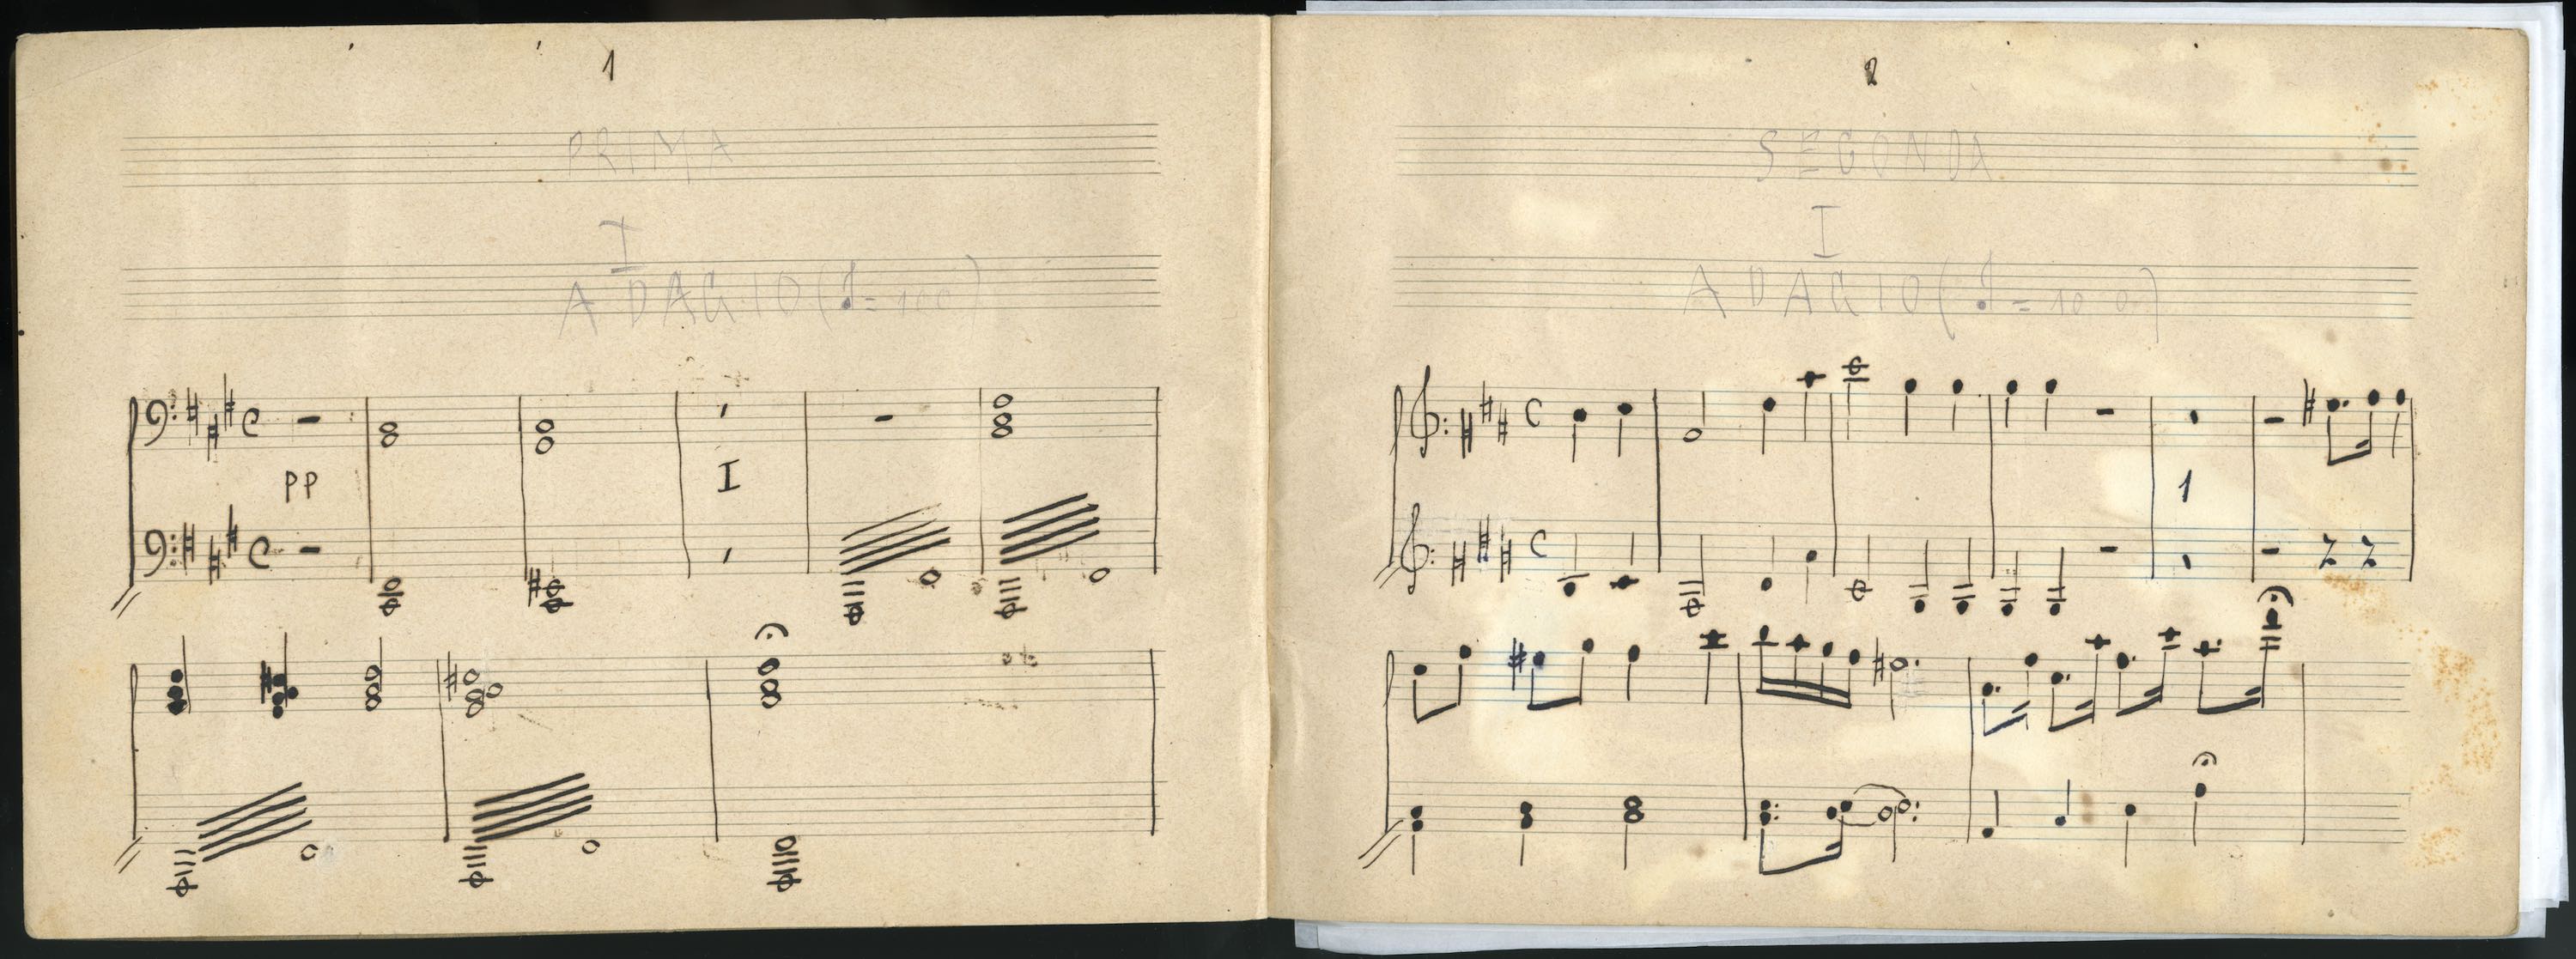 1
PRIMA
I
ADAGIO (♩= 100)
PP
I
2
SEGONDA
I
ADAGIO (♩= 100)
1